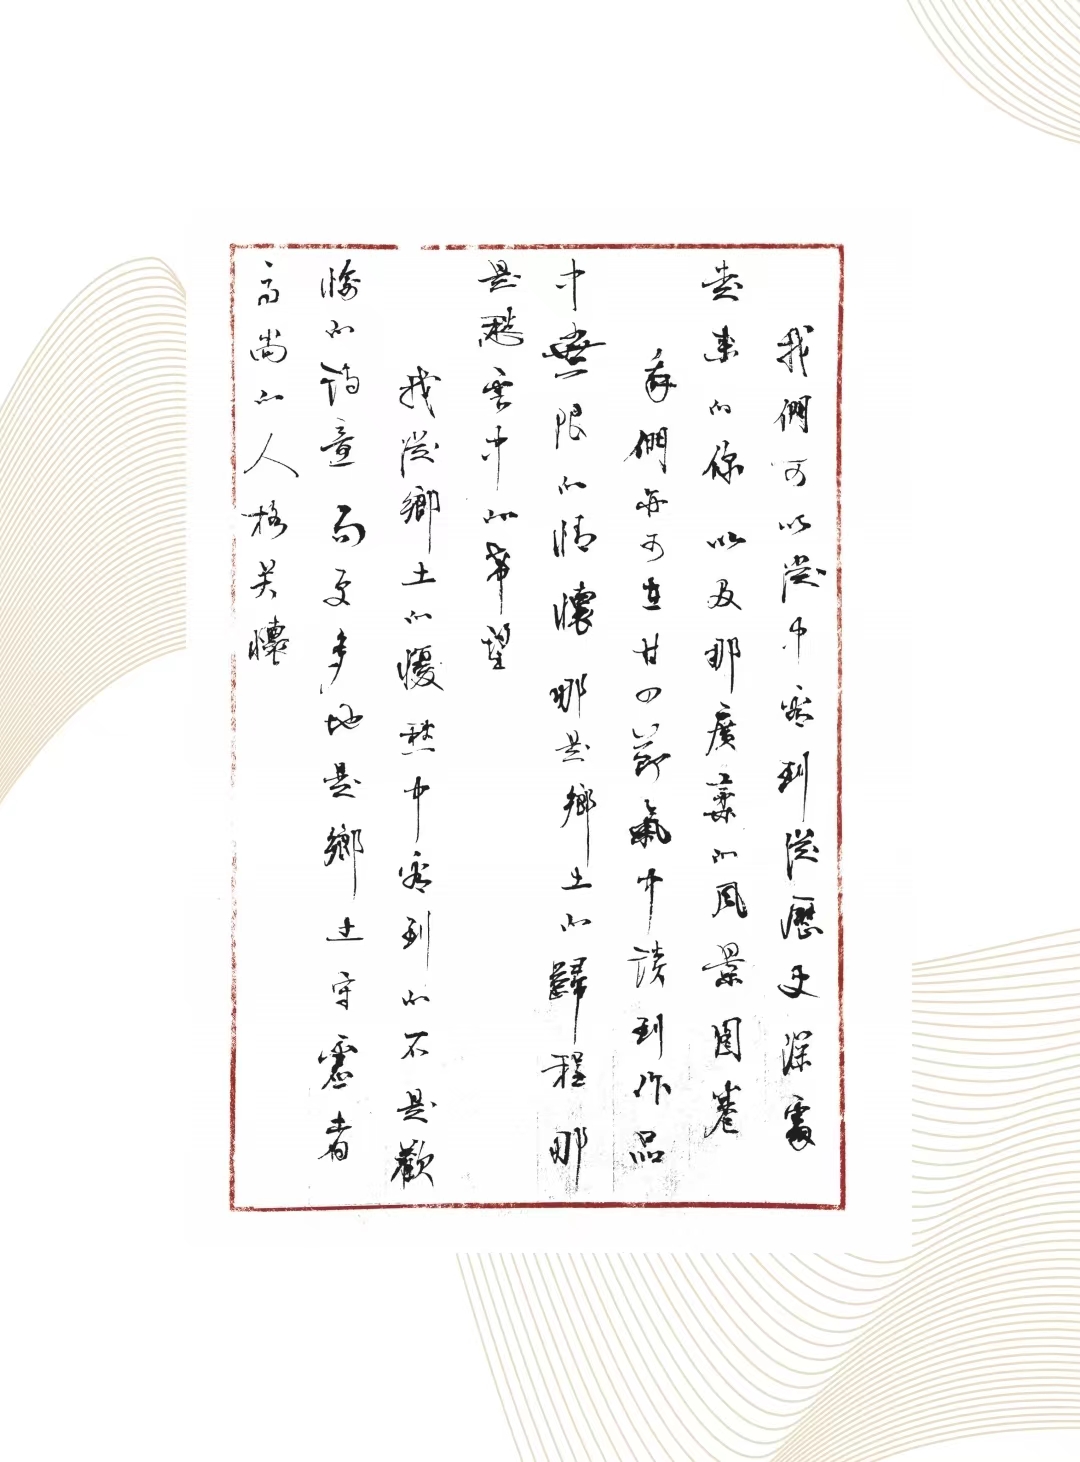 我們可以從中看到從歷史深處
走来的你 以及那廣葉的風景图卷
我們亦可在廿四節氣中读到作品
中無限的情懷 那是鄉土的歸程那
是愁雲中的希望
我從鄉土的憂愁中看到的不是歡
愉的诗章 而更多地是鄉土守靈者
高尚的人格关懷